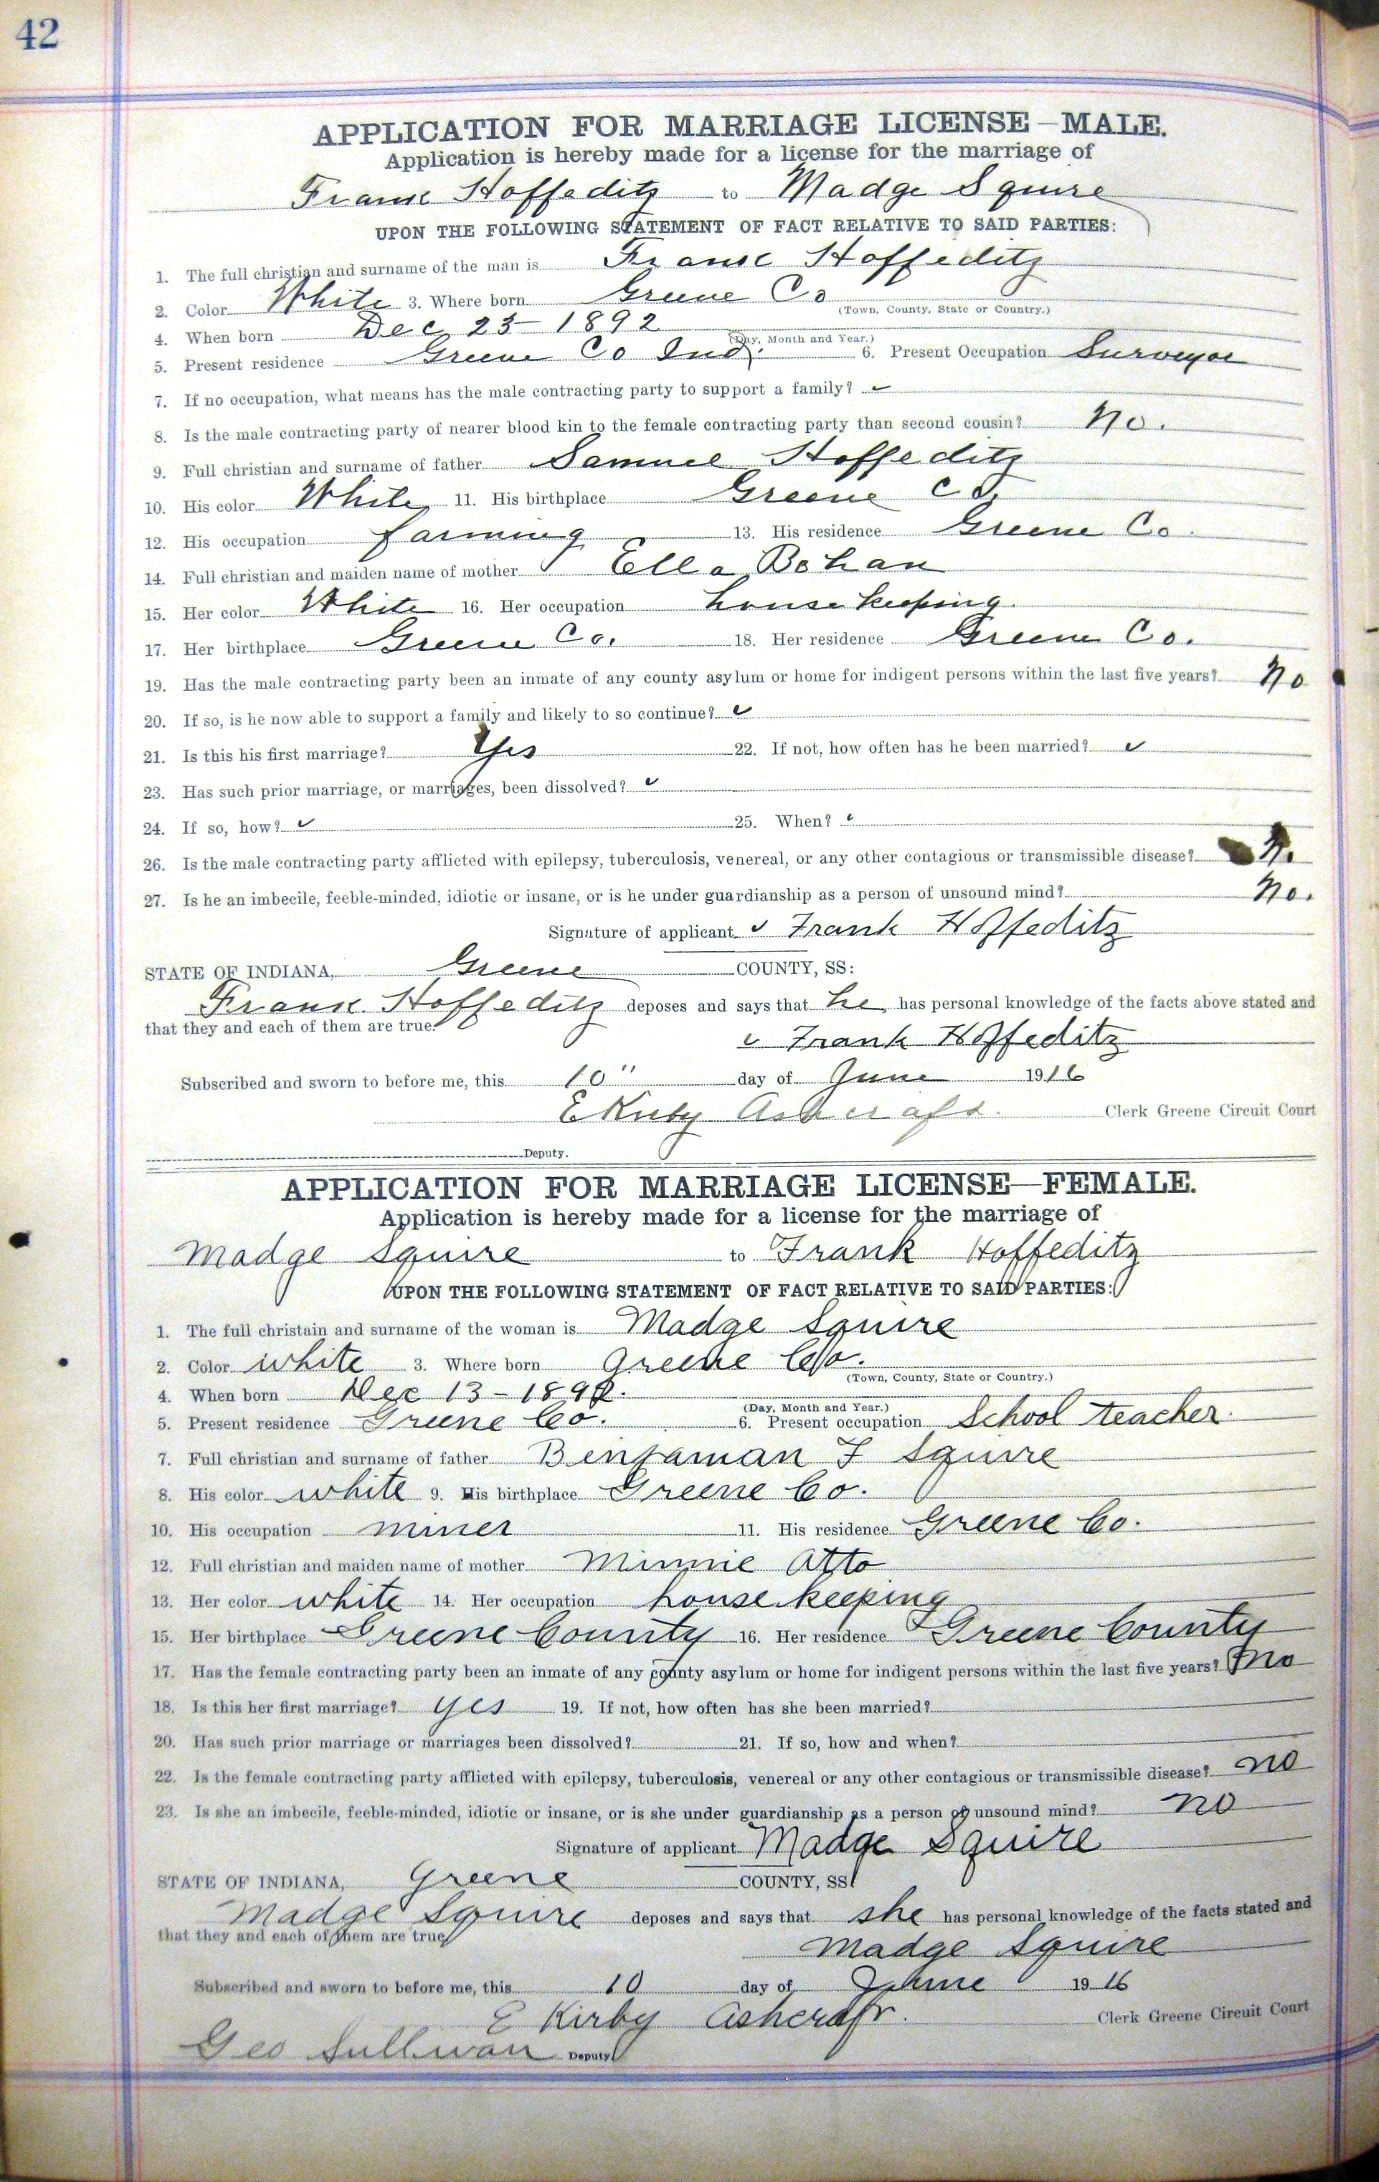 42
APPLICATION FOR MARRIAGE LICENSE—MALE.
Application is hereby made for a license for the marriage of
Frank Hoffeditz to Madge Squire
UPON THE FOLLOWING STATEMENT OF FACT RELATIVE TO SAID PARTIES:
1. The full christian and surname of the man is Frank Hoffeditz
2. Color White 3. Where born Greene Co
(Town, County, State or Country.)
4. When born Dec 23 - 1892
(Day, Month and Year.)
5. Present residence Greene Co Ind. 6. Present Occupation Surveyor
7. If no occupation, what means has the male contracting party to support a family? ✓
8. Is the male contracting party of nearer blood kin to the female contracting party than second cousin? No.
9. Full christian and surname of father Samuel Hoffeditz
10. His color White 11. His birthplace Greene Co.
12. His occupation farming 13. His residence Greene Co.
14. Full christian and maiden name of mother Ella Bohan
15. Her color White 16. Her occupation house keeping.
17. Her birthplace Greene Co. 18. Her residence Greene Co.
19. Has the male contracting party been an inmate of any county asylum or home for indigent persons within the last five years? No
20. If so, is he now able to support a family and likely to so continue? ✓
21. Is this his first marriage? Yes 22. If not, how often has he been married? ✓
23. Has such prior marriage, or marriages, been dissolved? ✓
24. If so, how? ✓ 25. When? ✓
26. Is the male contracting party afflicted with epilepsy, tuberculosis, venereal, or any other contagious or transmissible disease? No.
27. Is he an imbecile, feeble-minded, idiotic or insane, or is he under guardianship as a person of unsound mind? No.
Signature of applicant ✓ Frank Hoffeditz
STATE OF INDIANA, Greene COUNTY, SS:
Frank Hoffeditz deposes and says that he has personal knowledge of the facts above stated and
that they and each of them are true.
✓ Frank Hoffeditz
Subscribed and sworn to before me, this 10" day of June 1916
E Kirby Ashcraft. Clerk Greene Circuit Court
Deputy.
APPLICATION FOR MARRIAGE LICENSE—FEMALE.
Application is hereby made for a license for the marriage of
Madge Squire to Frank Hoffeditz
UPON THE FOLLOWING STATEMENT OF FACT RELATIVE TO SAID PARTIES:
1. The full christain and surname of the woman is Madge Squire
2. Color white 3. Where born Greene Co.
(Town, County, State or Country.)
4. When born Dec 13 - 1892.
(Day, Month and Year.)
5. Present residence Greene Co. 6. Present occupation School teacher.
7. Full christian and surname of father Benjaman F Squire
8. His color white 9. His birthplace Greene Co.
10. His occupation miner 11. His residence Greene Co.
12. Full christian and maiden name of mother Minnie Otto
13. Her color white 14. Her occupation house keeping
15. Her birthplace Greene County 16. Her residence Greene County
17. Has the female contracting party been an inmate of any county asylum or home for indigent persons within the last five years? no
18. Is this her first marriage? yes 19. If not, how often has she been married?
20. Has such prior marriage or marriages been dissolved? 21. If so, how and when?
22. Is the female contracting party afflicted with epilepsy, tuberculosis, venereal or any other contagious or transmissible disease? no
23. Is she an imbecile, feeble-minded, idiotic or insane, or is she under guardianship as a person of unsound mind? no
Signature of applicant Madge Squire
STATE OF INDIANA, Greene COUNTY, SS
Madge Squire deposes and says that she has personal knowledge of the facts stated and
that they and each of them are true
Madge Squire
Subscribed and sworn to before me, this 10 day of June 1916
E Kirby Ashcraft. Clerk Greene Circuit Court
Geo Sullivan Deputy